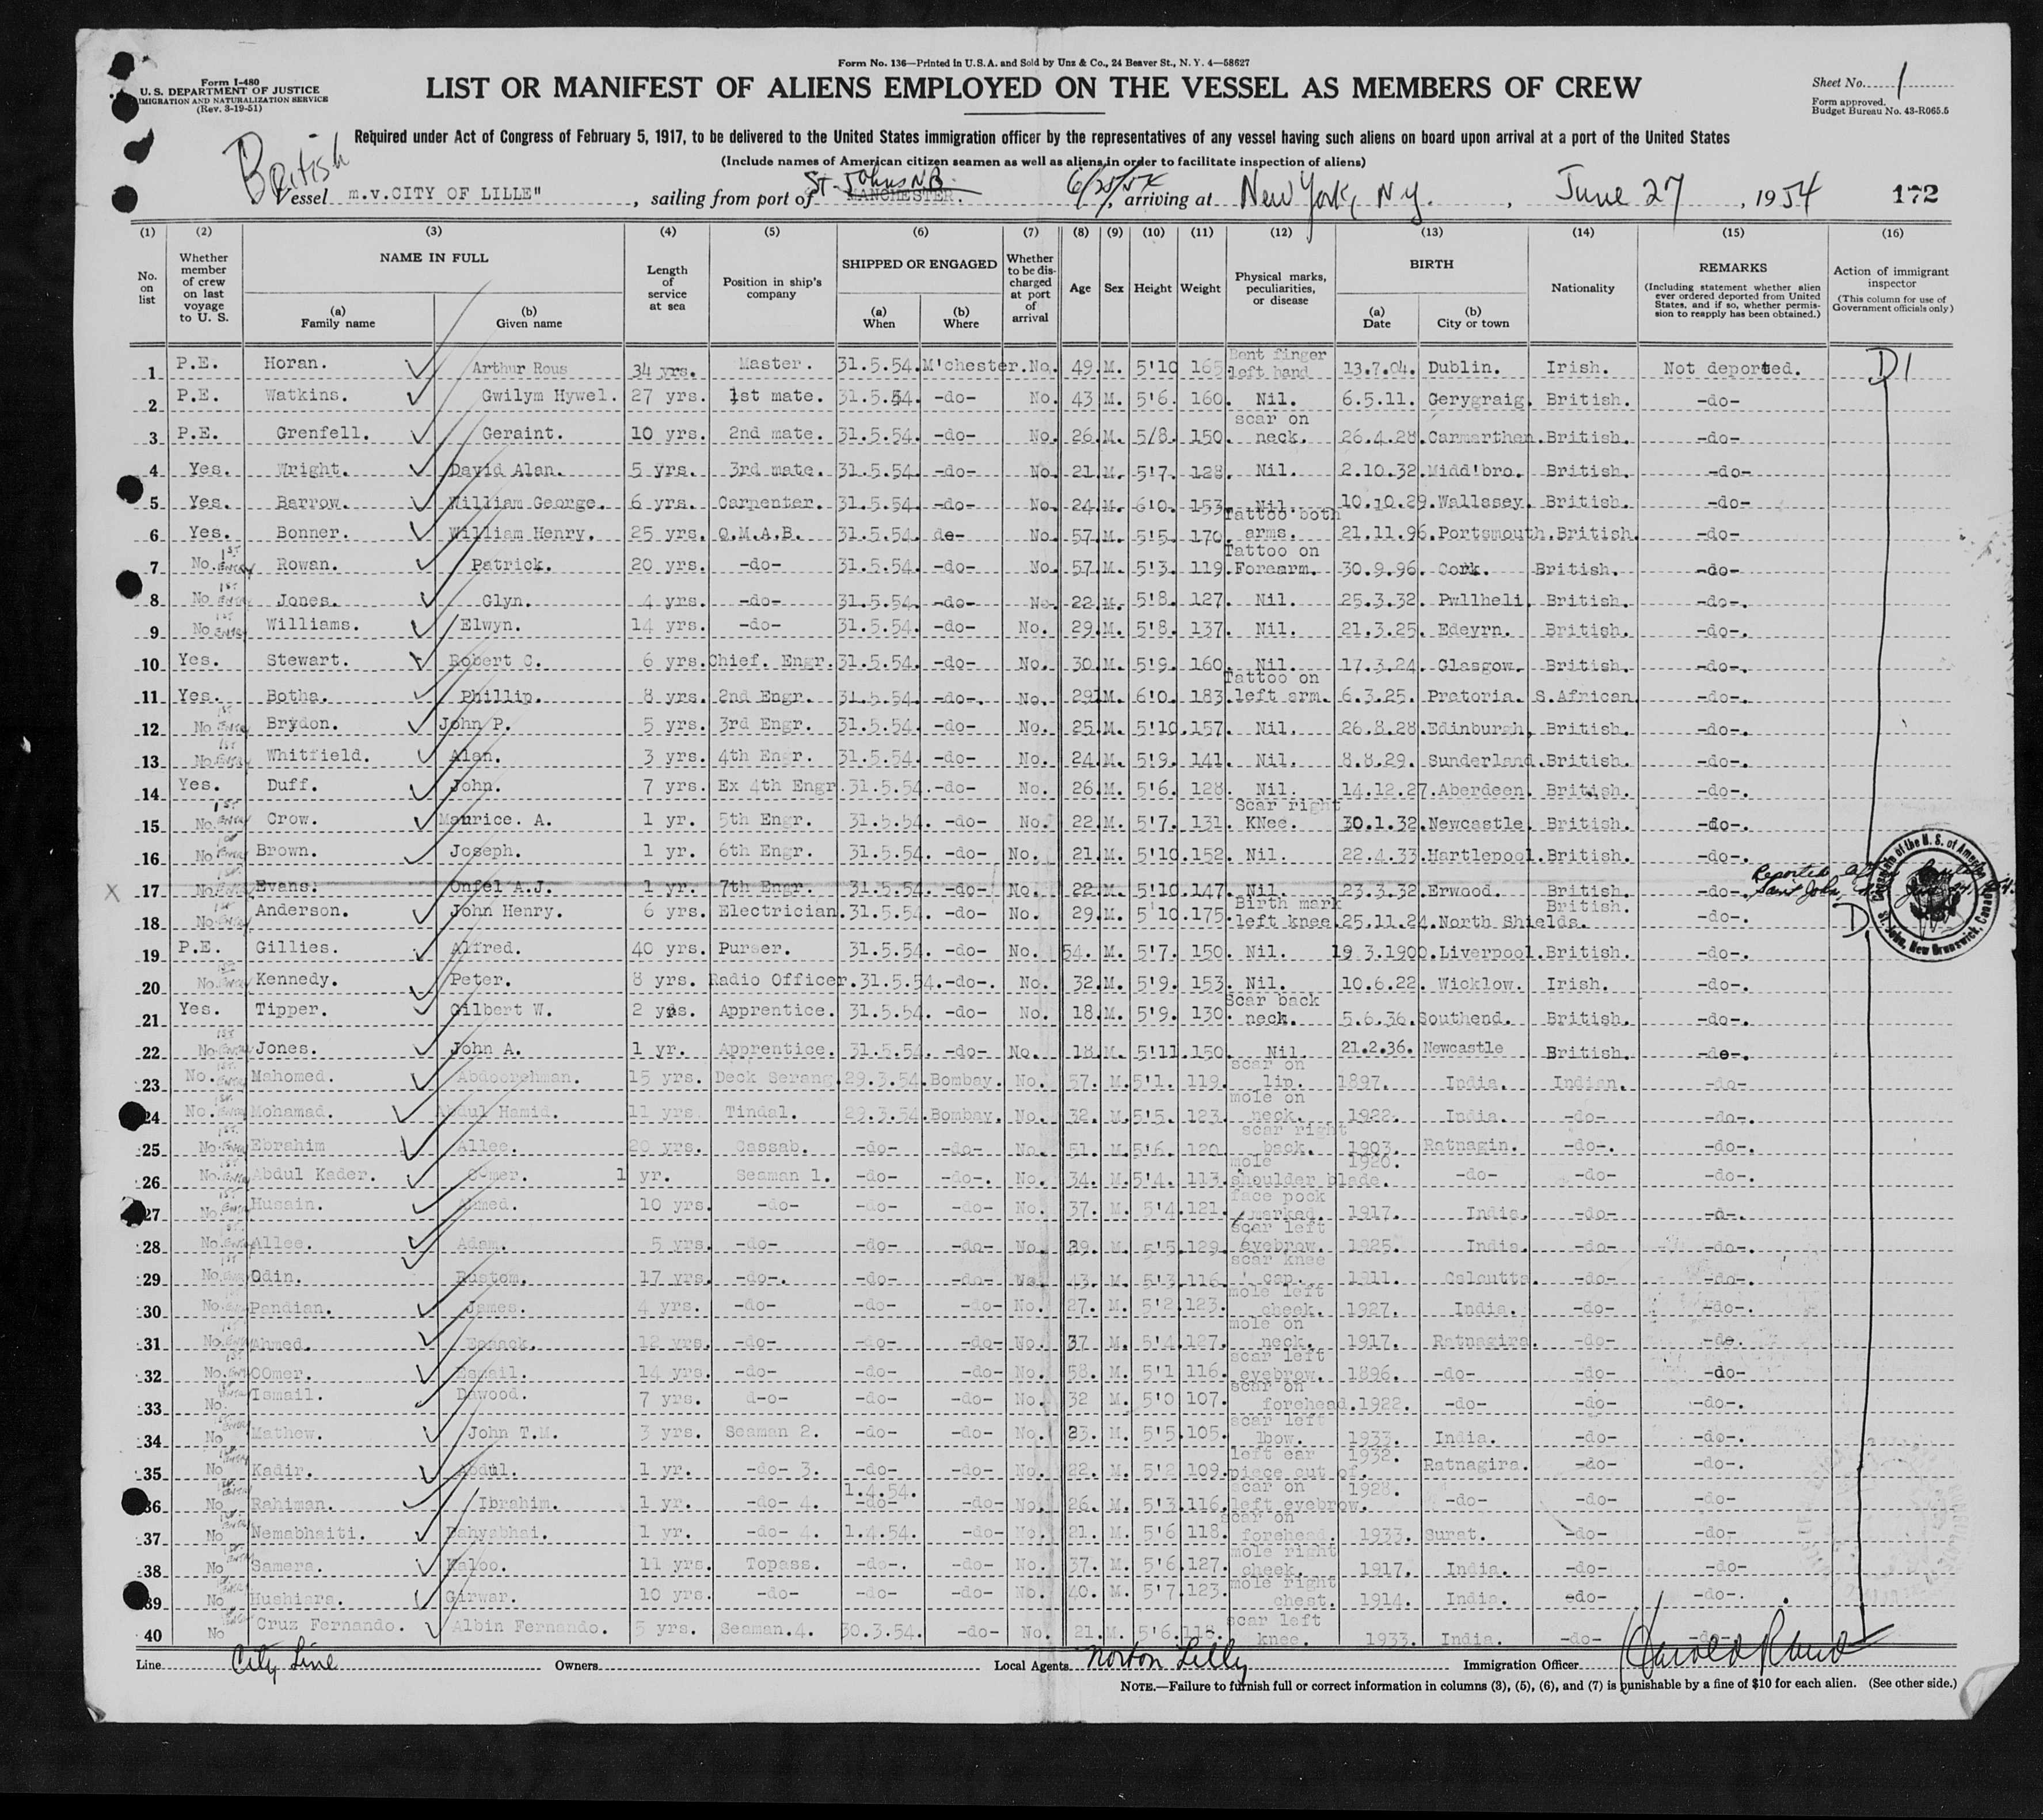 Form No. 136—Printed in U.S.A. and Sold by Unz & Co., 24 Beaver St., N. Y. 4—58627
Form I-480
U. S. DEPARTMENT OF JUSTICE
IMIGRATION AND NATURALIZATION SERVICE
(Rev. 3-19-51)
LIST OR MANIFEST OF ALIENS EMPLOYED ON THE VESSEL AS MEMBERS OF CREW
Sheet No. 1
Form approved.
Budget Bureau No. 43-R065.5
Required under Act of Congress of February 5, 1917, to be delivered to the United States immigration officer by the representatives of any vessel having such aliens on board upon arrival at a port of the United States
(Include names of American citizen seamen as well as aliens in order to facilitate inspection of aliens)
British
Vessel m.v.CITY OF LILLE" , sailing from port of MANCHESTER. St. Johns N.B. 6/25/54, arriving at New York, N.Y. , June 27 , 1954 172
(1) (2) (3) (4) (5) (6) (7) (8) (9) (10) (11) (12) (13) (14) (15) (16)
No. on list
Whether member of crew on last voyage to U. S.
NAME IN FULL
(a) Family name
(b) Given name
Length of service at sea
Position in ship's company
SHIPPED OR ENGAGED
(a) When
(b) Where
Whether to be discharged at port of arrival
Age
Sex
Height
Weight
Physical marks, peculiarities, or disease
BIRTH
(a) Date
(b) City or town
Nationality
REMARKS
(Including statement whether alien ever ordered deported from United States, and if so, whether permission to reapply has been obtained.)
Action of immigrant inspector
(This column for use of Government officials only)
1 P.E. Horan. Arthur Rous 34 yrs. Master. 31.5.54. M'chester. No. 49. M. 5'10 165 Bent finger left hand 13.7.04. Dublin. Irish. Not deported. D1
2 P.E. Watkins. Gwilym Hywel. 27 yrs. 1st mate. 31.5.54. -do- No. 43 M. 5'6. 160. Nil. 6.5.11. Gerygraig. British. -do-
3 P.E. Grenfell. Geraint. 10 yrs. 2nd mate. 31.5.54. -do- No. 26. M. 5/8. 150. scar on neck. 26.4.28. Carmarthen. British. -do-
4 Yes. Wright. David Alan. 5 yrs. 3rd mate. 31.5.54. -do- No. 21 M. 5'7. 128. Nil. 2.10.32. Midd'bro. British. -do-
5 Yes. Barrow. William George. 6 yrs. Carpenter. 31.5.54. -do- No. 24 M. 6'0. 153. Nil. 10.10.29. Wallasey. British. -do-
6 Yes. Bonner. William Henry. 25 yrs. Q.M.A.B. 31.5.54. do- No. 57 M. 5'5. 170. Tattoo both arms. 21.11.96. Portsmouth. British. -do-
7 No. 1st Entry Rowan. Patrick. 20 yrs. -do- 31.5.54. -do- No. 57. M. 5'3. 119. Tattoo on Forearm. 30.9.96. Cork. British. -do-
8 No 1st Entry Jones. Glyn. 4 yrs. -do- 31.5.54. -do- No. 22. M. 5'8. 127. Nil. 25.3.32. Pwllheli. British. -do-.
9 No 1st Entry Williams. Elwyn. 14 yrs. -do- 31.5.54. -do- No. 29. M. 5'8. 137. Nil. 21.3.25. Edeyrn. British. -do-.
10 Yes. Stewart. Robert C. 6 yrs. Chief. Engr. 31.5.54. -do- No. 30. M. 5'9. 160. Nil. 17.3.24. Glasgow. British. -do-.
11 Yes. Botha. Phillip. 8 yrs. 2nd Engr. 31.5.54. -do-. No. 29 M. 6'0. 183. Tattoo on left arm. 6.3.25. Pretoria. S.African. -do-.
12 No 1st Entry Brydon. John P. 5 yrs. 3rd Engr. 31.5.54. -do- No. 25. M. 5'10. 157. Nil. 26.8.28. Edinburgh, British. -do-.
13 No 1st Entry Whitfield. Alan. 3 yrs. 4th Engr. 31.5.54. -do- No. 24. M. 5'9. 141. Nil. 8.8.29. Sunderland. British. -do-.
14 Yes. Duff. John. 7 yrs. Ex 4th Engr. 31.5.54. -do- No. 26. M. 5'6. 128. Nil. 14.12.27. Aberdeen. British. -do-.
15 No. 1st Entry Crow. Maurice. A. 1 yr. 5th Engr. 31.5.54. -do- No. 22. M. 5'7. 131. Scar right KNee. 30.1.32. Newcastle. British. -do-.
16 No Entry Brown. Joseph. 1 yr. 6th Engr. 31.5.54. -do- No. 21. M. 5'10. 152. Nil. 22.4.33. Hartlepool. British. -do-.
X 17 No. Entry Evans. Onfel A.J. 1 yr. 7th Engr. 31.5.54. -do- No. 22. M. 5'10. 147. Nil. 23.3.32. Erwood. British. -do-.
18 No. Entry Anderson. John Henry. 6 yrs. Electrician. 31.5.54. -do- No. 29. M. 5'10. 175. Birth mark left knee. 25.11.24. North Shields. British. -do-. D
Consulate of the U. S. of America St. John, New Brunswick, Canada
19 P.E. Gillies. Alfred. 40 yrs. Purser. 31.5.54. -do- No. 54. M. 5'7. 150. Nil. 19 3.1900. Liverpool. British. -do-.
20 No. Entry Kennedy. Peter. 8 yrs. Radio Officer. 31.5.54. -do-. No. 32. M. 5'9. 153. Nil. 10.6.22. Wicklow. Irish. -do-.
21 Yes. Tipper. Gilbert W. 2 yrs. Apprentice. 31.5.54. -do- No. 18. M. 5'9. 130. Scar back neck. 5.6.36. Southend. British. -do-.
22 No Entry Jones. John A. 1 yr. Apprentice. 31.5.54. -do- No. 18. M. 5'11. 150. Nil. 21.2.36. Newcastle British. -do-.
23 No. Entry Mahomed. Abdoorehman. 15 yrs. Deck Serang. 29.3.54. Bombay. No. 57. M. 5'1. 119. scar on lip. 1897. India. Indian. -do-
24 No. Entry Mohamad. Abdul Hamid. 11 yrs. Tindal. 29.3.54. Bombay. No. 32. M. 5'5. 123. mole on neck. 1922. India. -do- -do-.
25 No. Entry Ebrahim Allee. 20 yrs. Cassab. -do- -do- No. 51. M. 5'6. 120 scar right back. 1903. Ratnagin. -do-. -do-.
26 No. Entry Abdul Kader. Oomer. 1 yr. Seaman 1. -do- -do-. No. 34. M. 5'4. 113. mole shoulder blade. 1920. -do- -do- -do-.
27 No. Entry Husain. Ahmed. 10 yrs. -do- -do- -do- No. 37. M. 5'4. 121. face pock marked. 1917. India. -do-
28 No. Entry Allee. Adam. 5 yrs. -do- -do- -do- No. 29. M. 5'5. 129. scar left eyebrow. 1925. India. -do- -do-.
29 No. Entry Odin. Rustom. 17 yrs. -do-. -do- -do- No. 43. M. 5'3. 116. scar knee cap. 1911. Calcutta. -do- -do-.
30 No. Entry Pandian. James. 4 yrs. -do- -do- -do- No. 27. M. 5'2. 123. mole left cheek. 1927. India. -do- -do-.
31 No. Entry Ahmed. Essack. 12 yrs. -do- -do- -do- No. 37 M. 5'4. 127. mole on neck. 1917. Ratnagira. -do- -do.
32 No. Entry OOmer. Esmail. 14 yrs. -do- -do- -do- No. 58. M. 5'1 116. scar left eyebrow. 1896. -do- -do- -do-
33 No. Entry Ismail. Dawood. 7 yrs. d-o- -do- -do- No. 32 M. 5'0 107. scar on forehead. 1922. -do- -do- -do-.
34 No Entry Mathew. John T.M. 3 yrs. Seaman 2. -do- -do- No. 23. M. 5'5. 105. scar left lbow. 1933. India. -do- -do-.
35 No Entry Kadir. Abdul. 1 yr. -do- 3. -do- -do- No. 22. M. 5'2 109. left ear piece out of. 1932. Ratnagira. -do- -do-.
36 No Entry Rahiman. Ibrahim. 1 yr. -do- 4. 1.4.54. -do- -do- No. 26. M. 5'3. 116. scar on left eyebrow. 1928. -do- -do- -do-
37 No Entry Nemabhaiti. Dahyabhai. 1 yr. -do- 4. 1.4.54. -do- No. 21. M. 5'6 118. scar on forehead. 1933. Surat. -do- -do-
38 No Entry Samera. Kaloo. 11 yrs. Topass. -do-. -do- No. 37. M. 5'6. 127. mole right cheek. 1917. India. -do- -do-
39 No Entry Hushiara. Girwar. 10 yrs. -do- -do- -do- No. 40. M. 5'7. 123. mole right chest. 1914. India. -do- -do-.
40 No Entry Cruz Fernando. Albin Fernando. 5 yrs. Seaman.4. 30.3.54. -do- No. 21. M. 5'6. 118. scar left knee. 1933. India. -do- -do-
Line City Line Owners Local Agents Norton Lilly Immigration Officer Harold Rand
NOTE.—Failure to furnish full or correct information in columns (3), (5), (6), and (7) is punishable by a fine of $10 for each alien. (See other side.)